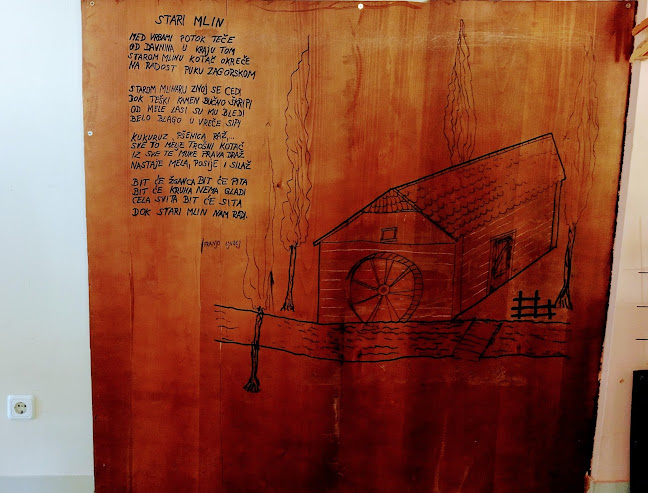 STARI MLIN
MED VRBAMI POTOK TEČE
OD DAVNINA U KRAJU TOM
STAROM MLINU KOTAČ OKREČE
NA RADOST PUKU ZAGORSKOM
STAROM MLINARU ZNOJ SE CEDI
DOK TEŠKI KAMEN BUČNO ŠKRIPI
OD MELE LASI SU MU BLEDI
BELO BLAGO U VREČE SIPI
KUKURUZ, PŠENICA RAŽ,...
SVE TO MELJE TROŠNI KOTAČ
IZ SVE TE MUKE PRAVA DRAŽ
NASTAJE MELA, POSIJE I SILAŽ
BIT ĆE ŽGANCA BIT ĆE PITA
BIT ĆE KRUHA NEMA GLADI
CELA SVITA BIT ĆE SITA
DOK STARI MLIN NAM RADI.